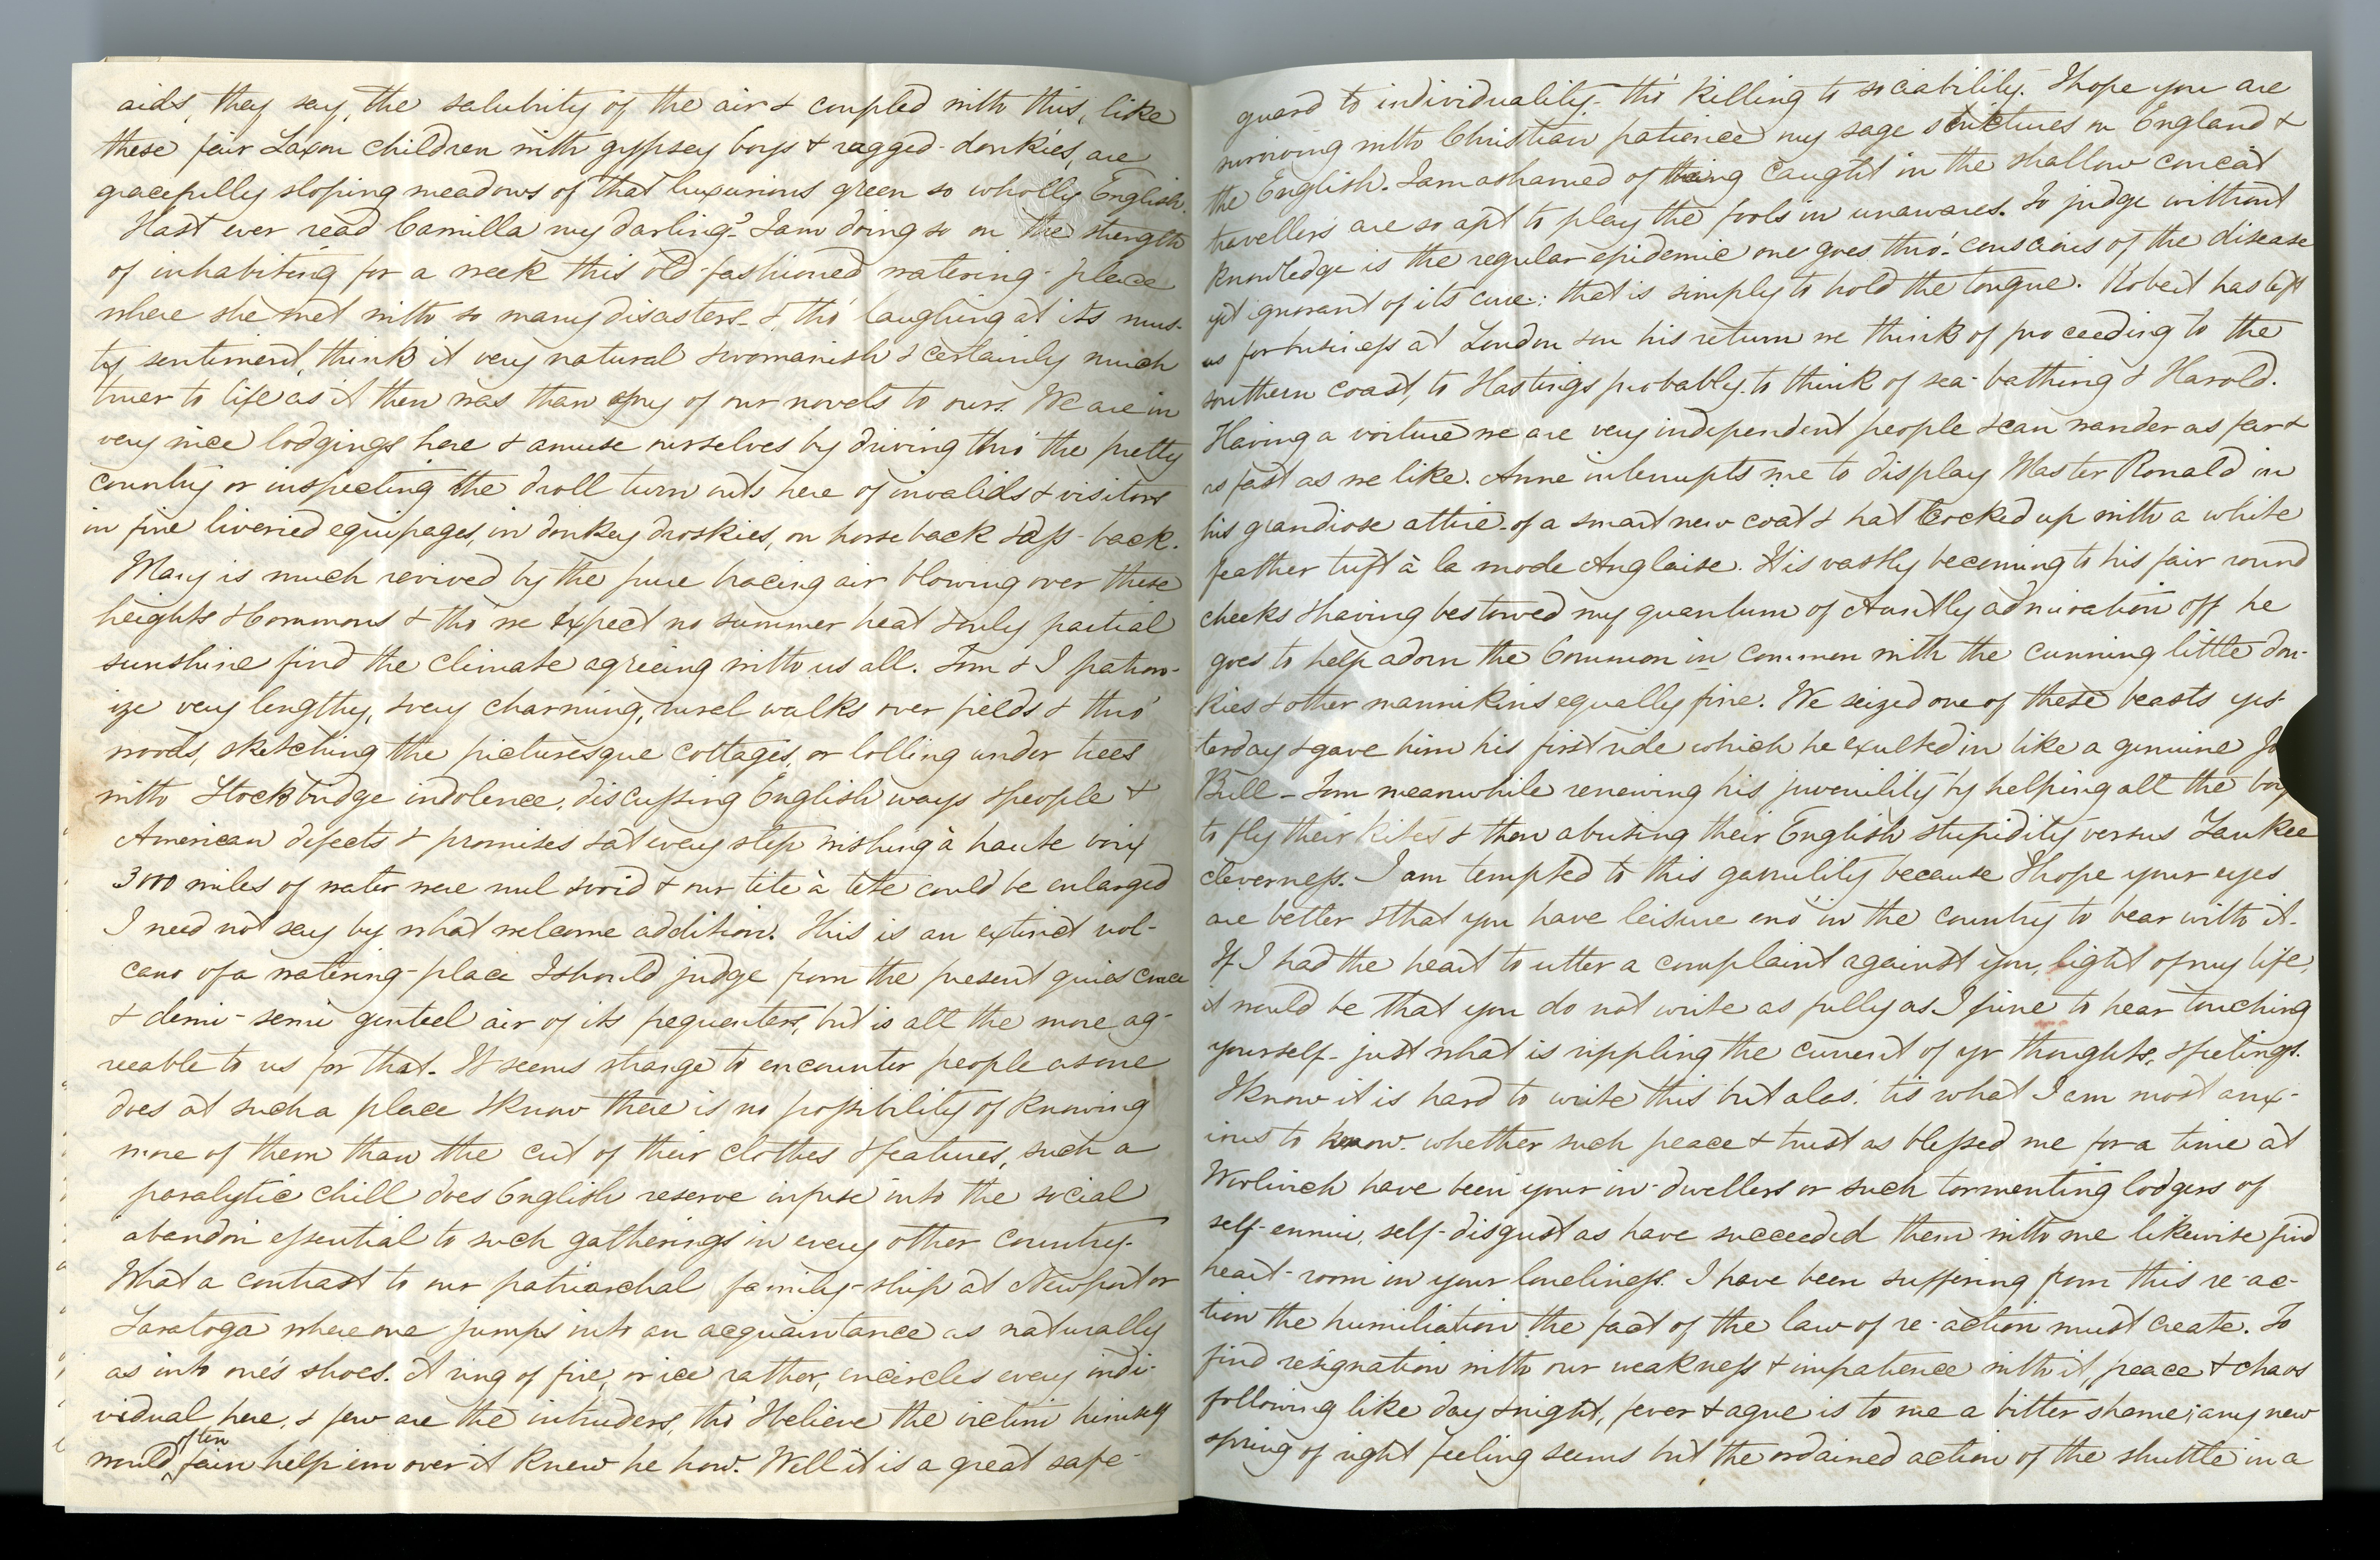 aids, they say, the salubrity of the air & coupled with this, like
these fair Saxon children with gypsey boys & ragged-donkies, are
gracefully sloping meadows of that luxurious green so wholly English.
Hast ever read Camilla my darling? I am doing so on the strength
of inhabiting for a week this old-fashioned watering-place
where she met with so many disasters_ & tho' laughing at its mus-
ty sentiment, think it very natural & womanish & certainly much
truer to life as it then was than any of our novels to ours. We are in
very nice lodgings here & amuse ourselves by driving thro' the pretty
country or inspecting the droll turn outs here of invalids & visitors
in fine liveried equipages, in donkey droskies, on horseback & ass-back.
Mary is much revived by the pure bracing air blowing over these
heights & Commons & tho' we expect no summer heat & only partial
sunshine find the climate agreeing with us all. Tom & I patron-
ize very lengthy, & very charming, rural walks over fields & thro'
woods, sketching the picturesque cottages, or lolling under trees
with Stockbridge indolence, discussing English ways & people &
American defects & promises & at every step wishing à haute voix
3000 miles of water were nul & void & our tête à tête could be enlarged
I need not say by what welcome addition. This is an extinct vol-
cano of a watering-place I should judge from the present quiescence
& demi-semi genteel air of its frequenters, but is all the more ag-
reeable to us for that. It seems strange to encounter people as one
does at such a place & know there is no possibility of knowing
more of them than the cut of their clothes & features, such a
paralytic chill does English reserve infuse into the social
abandon essential to such gatherings in every other country.
What a contrast to our patriarchal family-ship at Newport or
Saratoga where one jumps into an acquaintance as naturally
as into one's shoes. A ring of fire, or ice rather, encircles every indi-
vidual here, & few are the intruders, tho' I believe the victim himself
would often fain help em over it knew he how. Well it is a great safe-
guard to individuality- tho' killing to sociability. I hope you are
surviving with Christian patience my sage strictures on England &
the English. I am ashamed of being caught in the shallow conceit
travellers are so apt to play the fools in unawares. To judge without
knowledge is the regular epidemic one goes thro': conscious of the disease
yet ignorant of its cure: that is simply to hold the tongue. Robert has left
us for business at London & on his return we think of proceeding to the
southern coast, to Hastings probably. to think of sea-bathing & Harold.
Having a voiture we are very independent people & can wander as far &
as fast as we like. Anne interrupts me to display Master Ronald in
his grandiose attire- of a smart new coat & hat cocked up with a white
feather tuft à la mode Anglaise. It is vastly becoming to his fair round
cheeks & having bestowed my quantum of Auntly admiration off he
goes to help adorn the Common in common with the cunning little don-
kies & other mannikins equally fine. We seized one of these beasts yes-
terday & gave him his first ride which he exulted in like a genuine
Bull_ Tom meanwhile renewing his juvenility by helping all the boys
to fly their kites & then abusing their English stupidity versus Yankee
cleverness. I am tempted to this garrulity because I hope your eyes
are better & that you have leisure eno' in the country to bear with it.
If I had the heart to utter a complaint against you, light of my life,
it would be that you do not write as fully as I pine to hear touching
yourself- just what is rippling the current of yr thoughts, & feelings.
I know it is hard to write this but alas! tis what I am most anx-
ious to know. whether such peace & trust as blessed me for a time at
Woolwich have been your in-dwellers or such tormenting lodgers of
self-ennui, self-disgust as have succeeded them with me likewise find
heart-room in your loneliness. I have been suffering from this re-ac-
tion the humiliation the fact of the law of re-action must create. To
find resignation with our weakness & impatience with it, peace & chaos
following like day & night, fever & ague is to me a bitter shame; any new
spring of right feeling seems but the ordained action of the shuttle in a